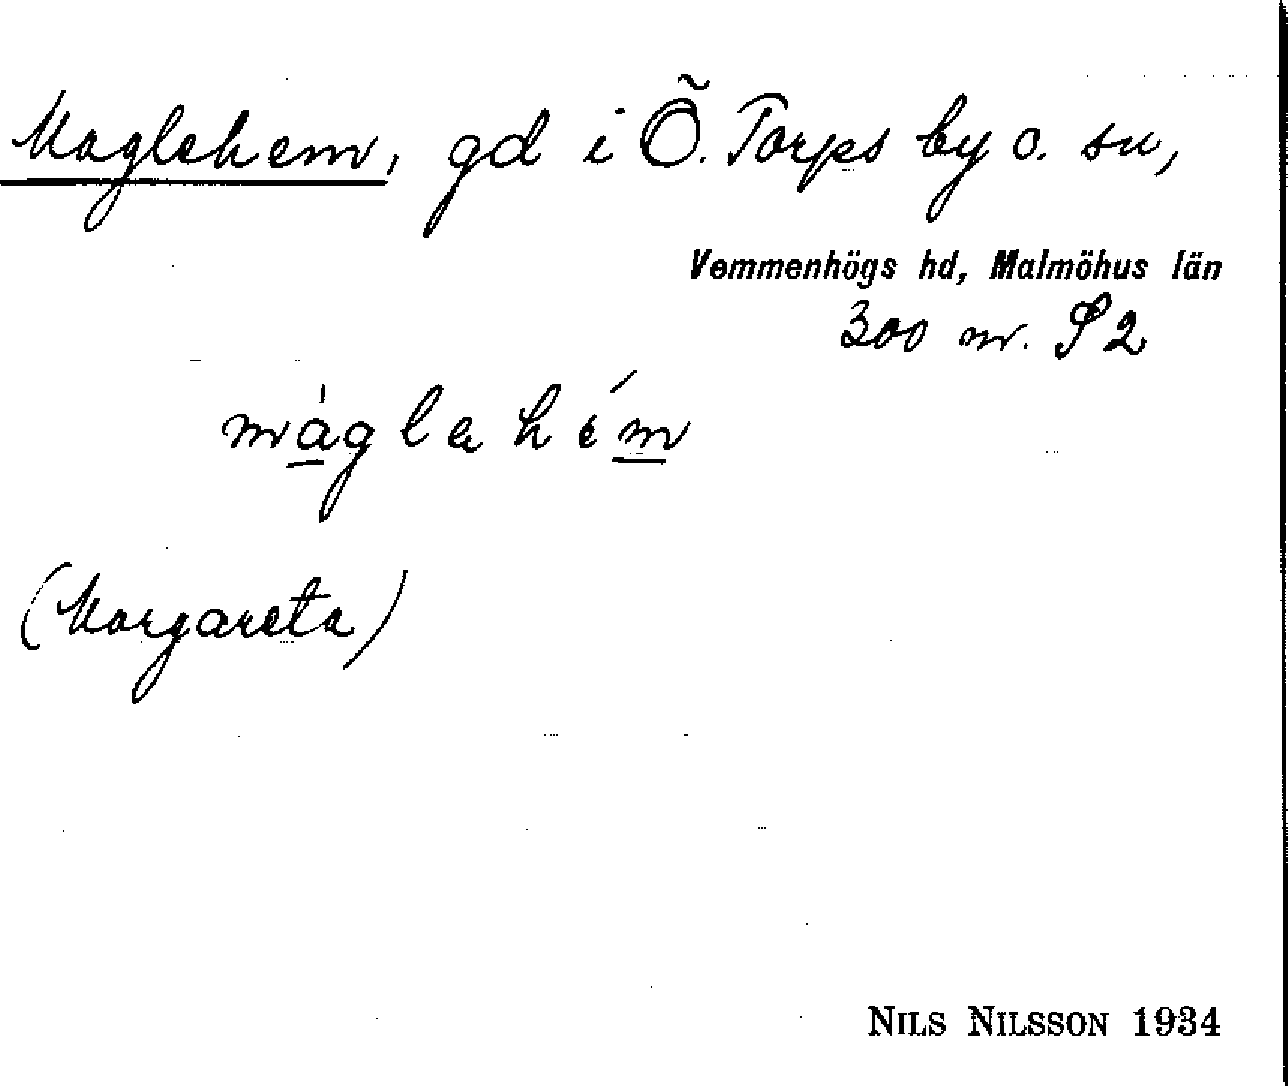 Maglehem, gd i Ö. Torps by o. sn,
Vemmenhögs hd, Malmöhus län
300 m. S 2
màglahém
(Margareta)
NILS NILSSON 1934